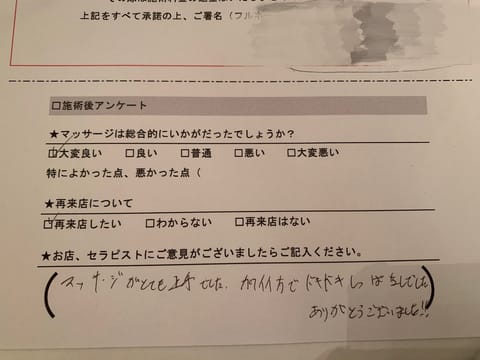 上記をすべて承諾の上、ご署名（フルネ
□施術後アンケート
★マッサージは総合的にいかがだったでしょうか？
☑大変良い □良い □普通 □悪い □大変悪い
特によかった点、悪かった点（
★再来店について
☑再来店したい □わからない □再来店はない
★お店、セラピストにご意見がございましたらご記入ください。
(マッサージがとても上手でした。カワイイ方でドキドキしっぱなしでした
ありがとうございました!!)